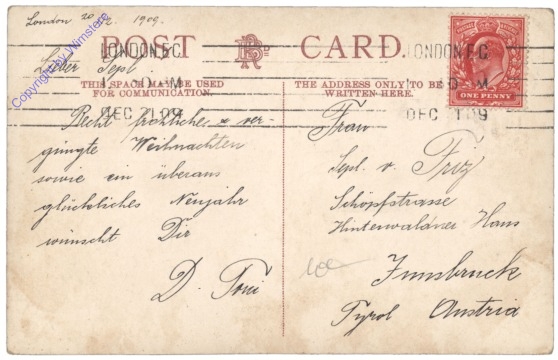 London 20 12. 1909.
POST CARD.
LONDON.E.C.
LONDON.E.C.
Lieber Sepl.
THIS SPACE MAY BE USED
FOR COMMUNICATION.
THE ADDRESS ONLY TO BE
WRITTEN HERE.
DEC 09
DEC 09
ONE PENNY
Recht fröhliches & ver-
gnügte Weihnachten
sowie ein überaus
glückliches Neujahr
wünscht Dir
D. Toni
Frau
Sepl. v. Friz
Schöpfstrasse
Hinterwaldner Haus
Innsbruck
Tyrol Austria
Copyright by Wimstere